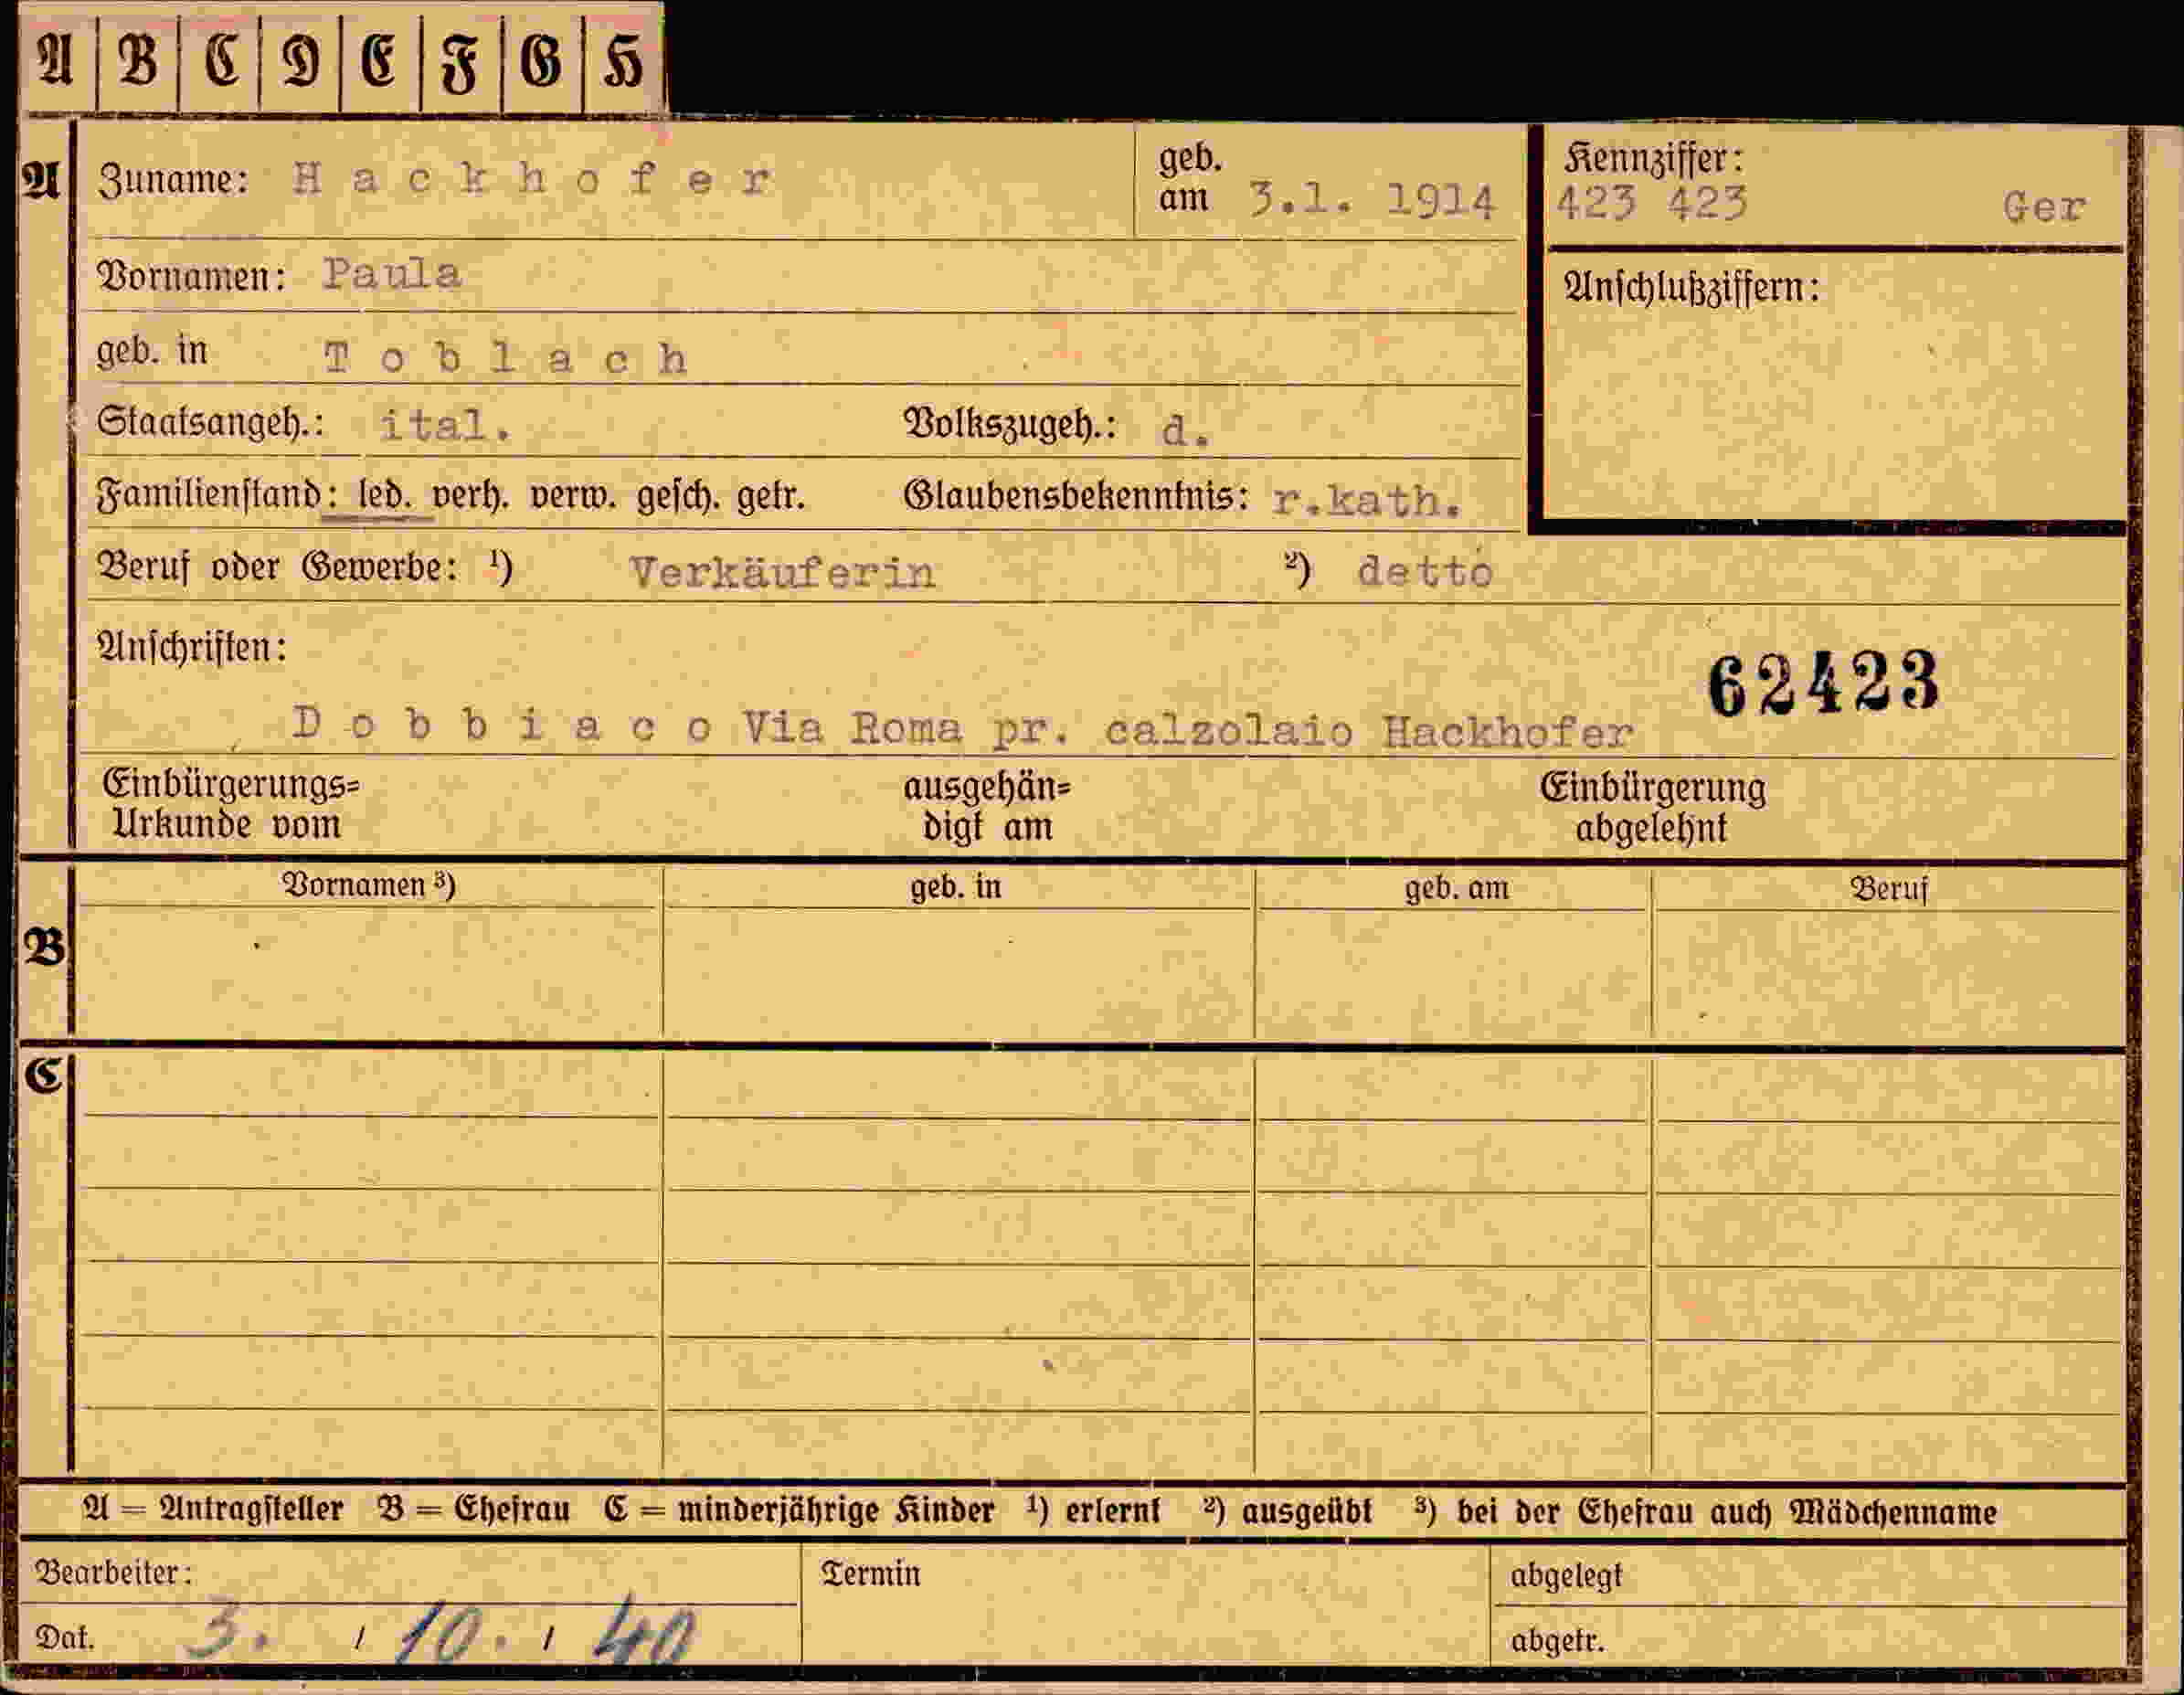 A B C D E F G H
A Zuname: Hackhofer geb. am 3.1. 1914 Kennziffer: 423 423 Ger
Vornamen: Paula Anschlußziffern:
geb. in Toblach
Staatsangeh.: ital. Volkszugeh.: d.
Familienstand: led. verh. verw. gesch. getr. Glaubensbekenntnis: r.kath.
Beruf oder Gewerbe: ¹) Verkäuferin ²) detto
Anschriften:
62423
Dobbiaco Via Roma pr. calzolaio Hackhofer
Einbürgerungs= ausgehän= Einbürgerung
Urkunde vom digt am abgelehnt
Vornamen ³) geb. in geb. am Beruf
B
C
A = Antragsteller B = Ehefrau C = minderjährige Kinder ¹) erlernt ²) ausgeübt ³) bei der Ehefrau auch Mädchenname
Bearbeiter: Termin abgelegt
Dat. 3. / 10. / 40 abgetr.